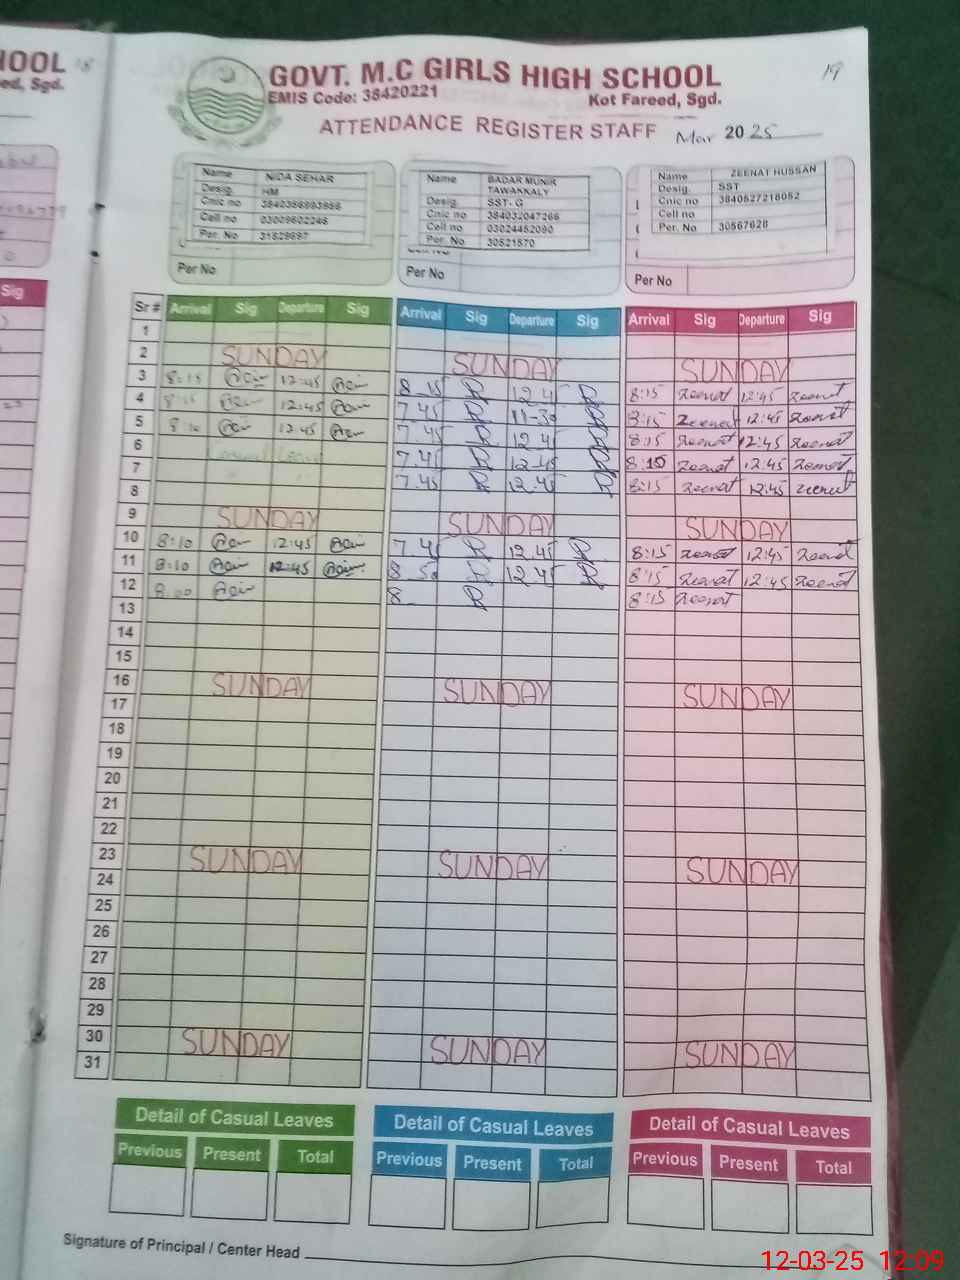 HOOL 18
ed, Sgd.
Sig
GOVT. M.C GIRLS HIGH SCHOOL 19
EMIS Code: 38420221
Kot Fareed, Sgd.
ATTENDANCE REGISTER STAFF Mar 2025
Name NIDA SEHAR
Desig. HM
Cnic no
Cell no
Per. No
Per No
Name BADAR MUNIR TAWAKKALY
Desig. SST-G
Cnic no 384032047266
Cell no 03024452090
Per. No 30521570
Per No
Name ZEENAT HUSSAN
Desig. SST
Cnic no 3840527218052
Cell no
Per. No 30567628
Per No
Sr # Arrival Sig Departure Sig Arrival Sig Departure Sig Arrival Sig Departure Sig
1
2 SUNDAY SUNDAY SUNDAY
3 8:15 12:45 8.15 12.4 8:15 Zeenat 12:45 Zeenat
4 8:15 12:45 7.45 11-30 8:15 Zeenat 12:45 Zeenat
5 8:10 12:45 7.45 12.4 8:15 Zeenat 12:45 Zeenat
6 7.45 12.45 8:15 Zeenat 12:45 Zeenat
7 7.45 12.45 8:15 Zeenat 12:45 Zeenat
8
9 SUNDAY SUNDAY SUNDAY
10 8:10 12:45 7.45 12.45 8:15 Zeenat 12:45 Zeenat
11 8:10 12:45 8.50 12.45 8:15 Zeenat 12:45 Zeenat
12 8:00 8 8:15 Zeenat
13
14
15
16 SUNDAY SUNDAY SUNDAY
17
18
19
20
21
22
23 SUNDAY SUNDAY SUNDAY
24
25
26
27
28
29
30 SUNDAY SUNDAY SUNDAY
31
Detail of Casual Leaves Detail of Casual Leaves Detail of Casual Leaves
Previous Present Total Previous Present Total Previous Present Total
Signature of Principal / Center Head
12-03-25 12:09